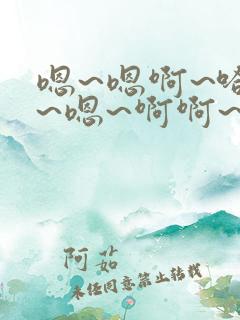 嗯~嗯啊~嗒
~嗯~啊啊~
阿茹
未经同意禁止转载